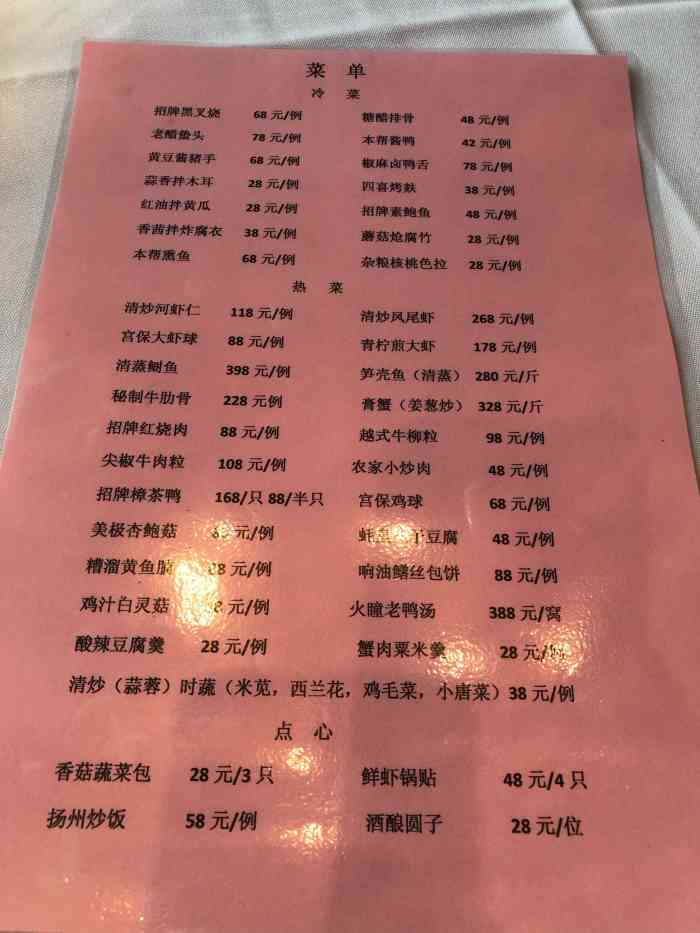 菜 单
冷 菜
招牌黑叉烧 68 元/例 糖醋排骨 48 元/例
老醋蛰头 78 元/例 本帮酱鸭 42 元/例
黄豆酱猪手 68 元/例 椒麻卤鸭舌 78 元/例
蒜香拌木耳 28 元/例 四喜烤麸 38 元/例
红油拌黄瓜 28 元/例 招牌素鲍鱼 48 元/例
香茜拌炸腐衣 38 元/例 蘑菇炝腐竹 28 元/例
本帮熏鱼 68 元/例 杂粮核桃色拉 28 元/例
热 菜
清炒河虾仁 118 元/例 清炒凤尾虾 268 元/例
宫保大虾球 88 元/例 青柠煎大虾 178 元/例
清蒸鮰鱼 398 元/例 笋壳鱼（清蒸） 280 元/斤
秘制牛肋骨 228 元例 膏蟹（姜葱炒） 328 元/斤
招牌红烧肉 88 元/例 越式牛柳粒 98 元/例
尖椒牛肉粒 108 元/例 农家小炒肉 48 元/例
招牌樟茶鸭 168/只 88/半只 宫保鸡球 68 元/例
美极杏鲍菇 元/例 豆腐 48 元/例
糟溜黄鱼脯 8 元/例 响油鳝丝包饼 88 元/例
鸡汁白灵菇 8 元/例 火瞳老鸭汤 388 元/窝
酸辣豆腐羹 28 元/例 蟹肉粟米羹 28 元/
清炒（蒜蓉）时蔬（米苋，西兰花，鸡毛菜，小唐菜）38 元/例
点 心
香菇蔬菜包 28 元/3 只 鲜虾锅贴 48 元/4 只
扬州炒饭 58 元/例 酒酿圆子 28 元/位